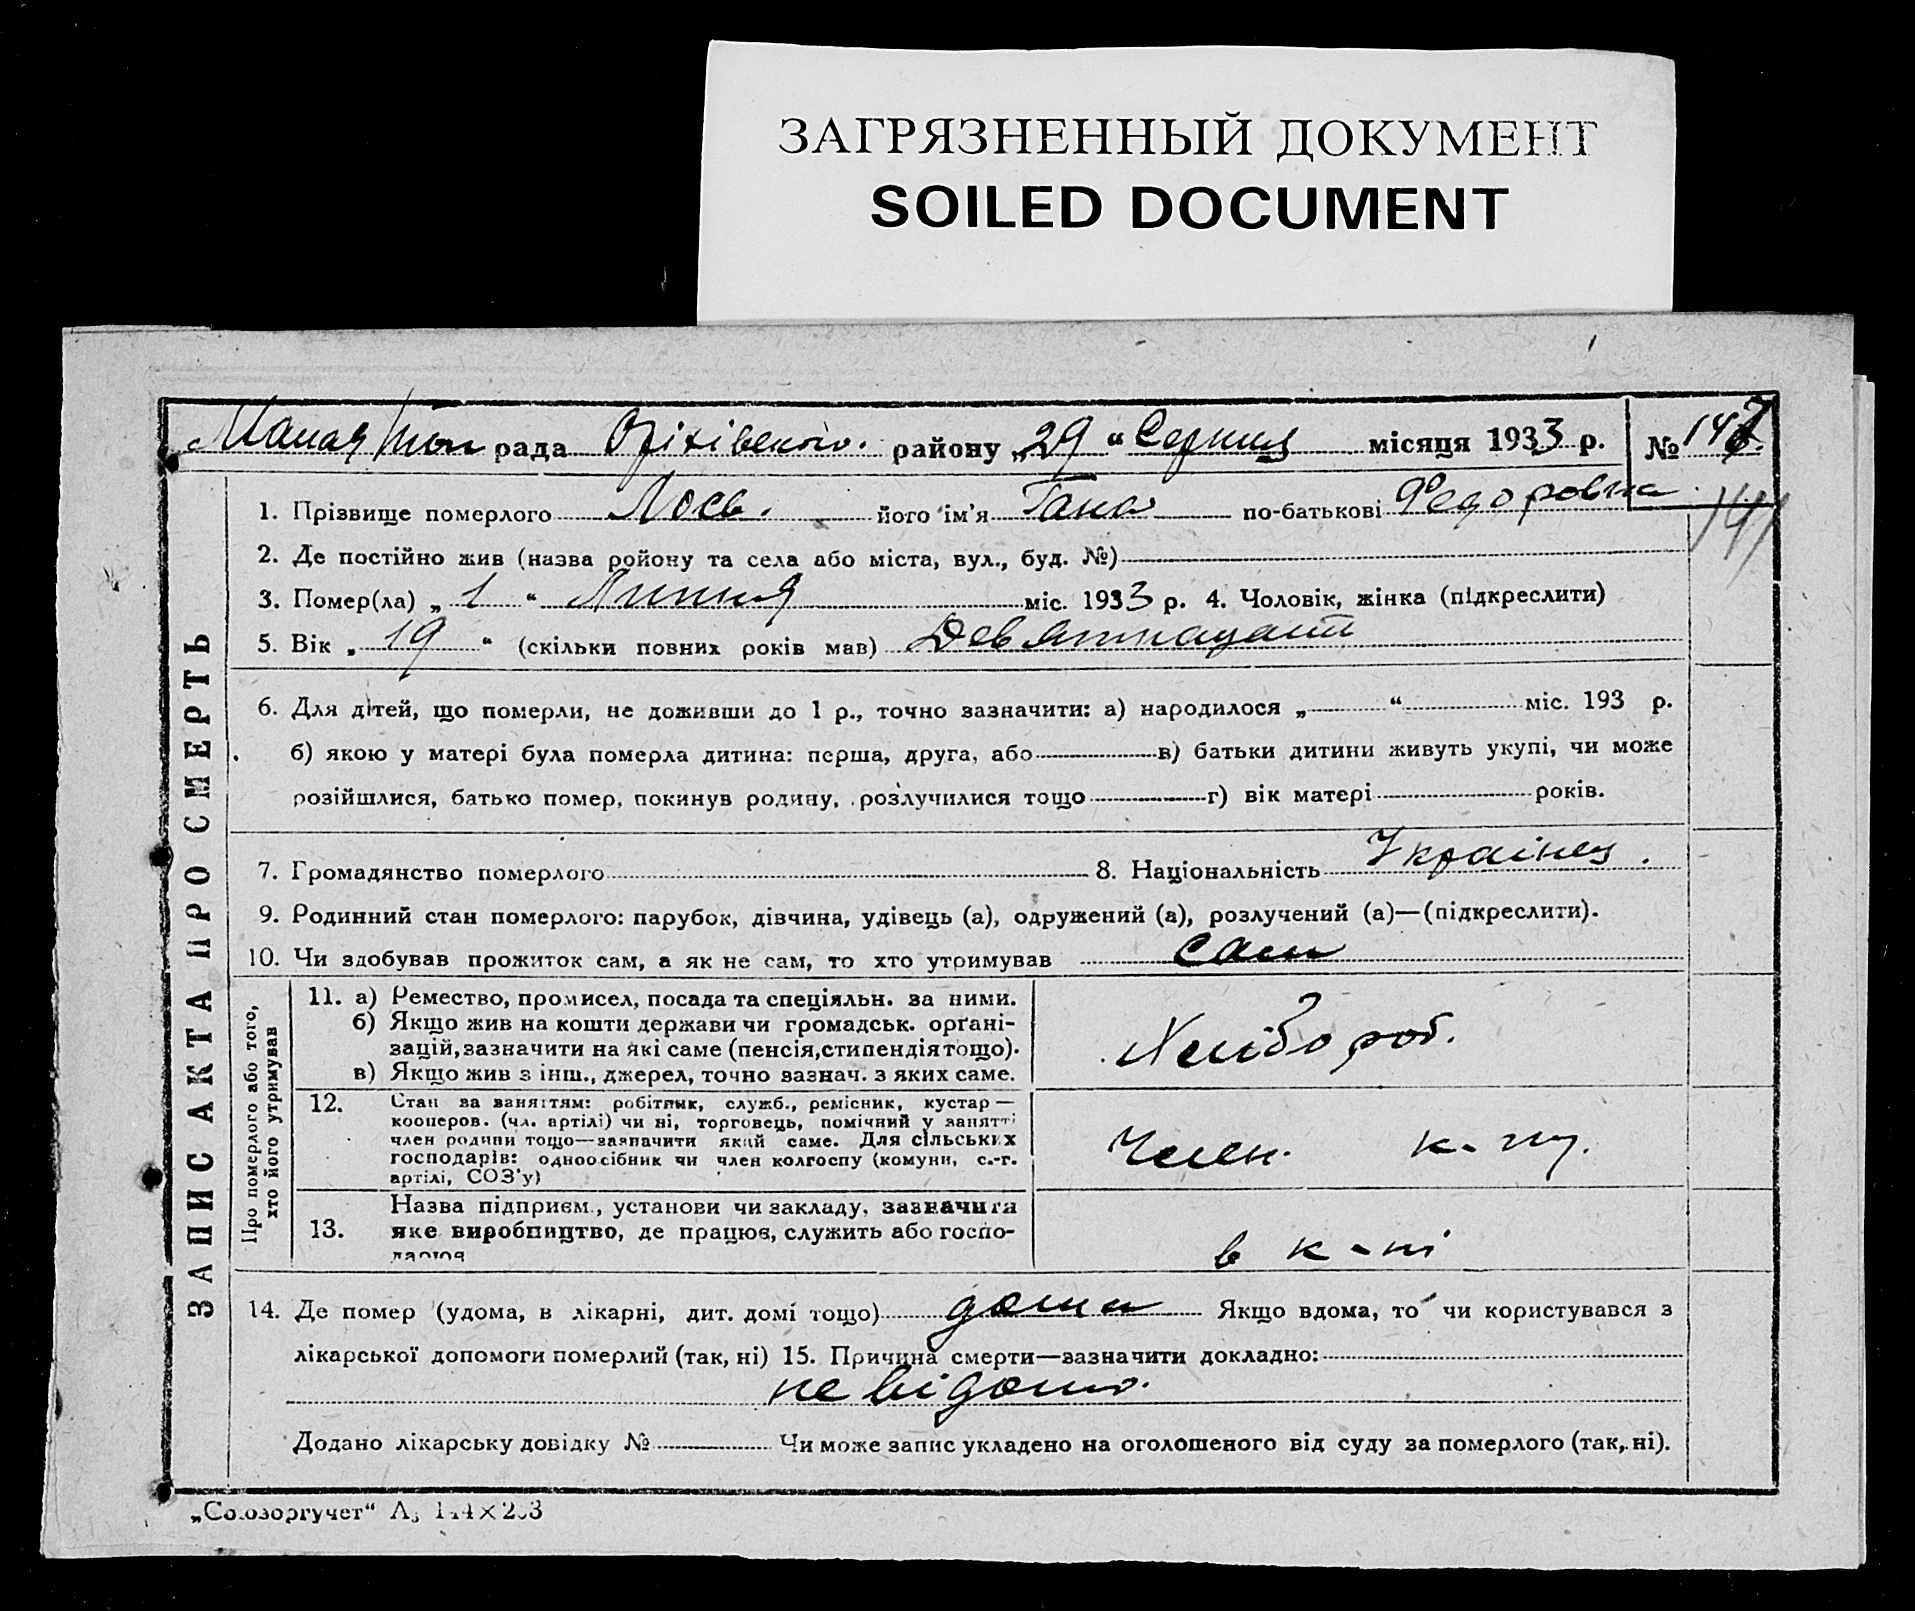 ЗАГРЯЗНЕННЫЙ ДОКУМЕНТ
SOILED DOCUMENT
рада Оріхівського району „29“ Серпня місяця 1933 р. №
141
1. Прізвище померлого Лось. його ім’я Гана по-батькові Федоровна
2. Де постійно жив (назва ройону та села або міста, вул., буд. №)
3. Помер(ла) „1“ Липня міс. 1933 р. 4. Чоловік, жінка (підкреслити)
5. Вік „19“ (скільки повних років мав) Девятнацать
6. Для дітей, що померли, не доживши до 1 р., точно зазначити: а) народилося „ “ міс. 193 р.
б) якою у матері була померла дитина: перша, друга, або в) батьки дитини живуть укупі, чи може
розійшлися, батько помер, покинув родину, розлучилися тощо г) вік матері років.
7. Громадянство померлого 8. Національність Українец.
9. Родинний стан померлого: парубок, дівчина, удівець (а), одружений (а), розлучений (а)—(підкреслити).
10. Чи здобував прожиток сам, а як не сам, то хто утримував сам
ЗАПИСКА ПРО СМЕРТЬ
Про померлого або того,
хто його утримував
11. а) Ремество, промисел, посада та спеціяльн. за ними.
б) Якщо жив на кошти держави чи громадськ. орґані-
зацій, зазначити на які саме (пенсія, стипендія тощо).
в) Якщо жив з інш., джерел, точно зазнач. з яких саме.
Хлібороб.
12. Стан за заняттям: робітник, служб., ремісник, кустар—
кооперов. (чл. артілі) чи ні, торговець, помічний у занятті
член родини тощо—зазначити який саме. Для сільських
господарів: одноосібник чи член колгоспу (комуни, с.-г.
артілі, СОЗ’у)
Член. к-ну.
13. Назва підприєм., установи чи закладу, зазначити
яке виробництво, де працює, служить або госпо-
дарює
в к-ні
14. Де помер (удома, в лікарні, дит. домі тощо) дома Якщо вдома, то чи користувався з
лікарської допомоги померлий (так, ні) 15. Причина смерти—зазначити докладно:
невідомо.
Додано лікарську довідку № Чи може запис укладено на оголошеного від суду за померлого (так, ні).
„Союзоргучет“